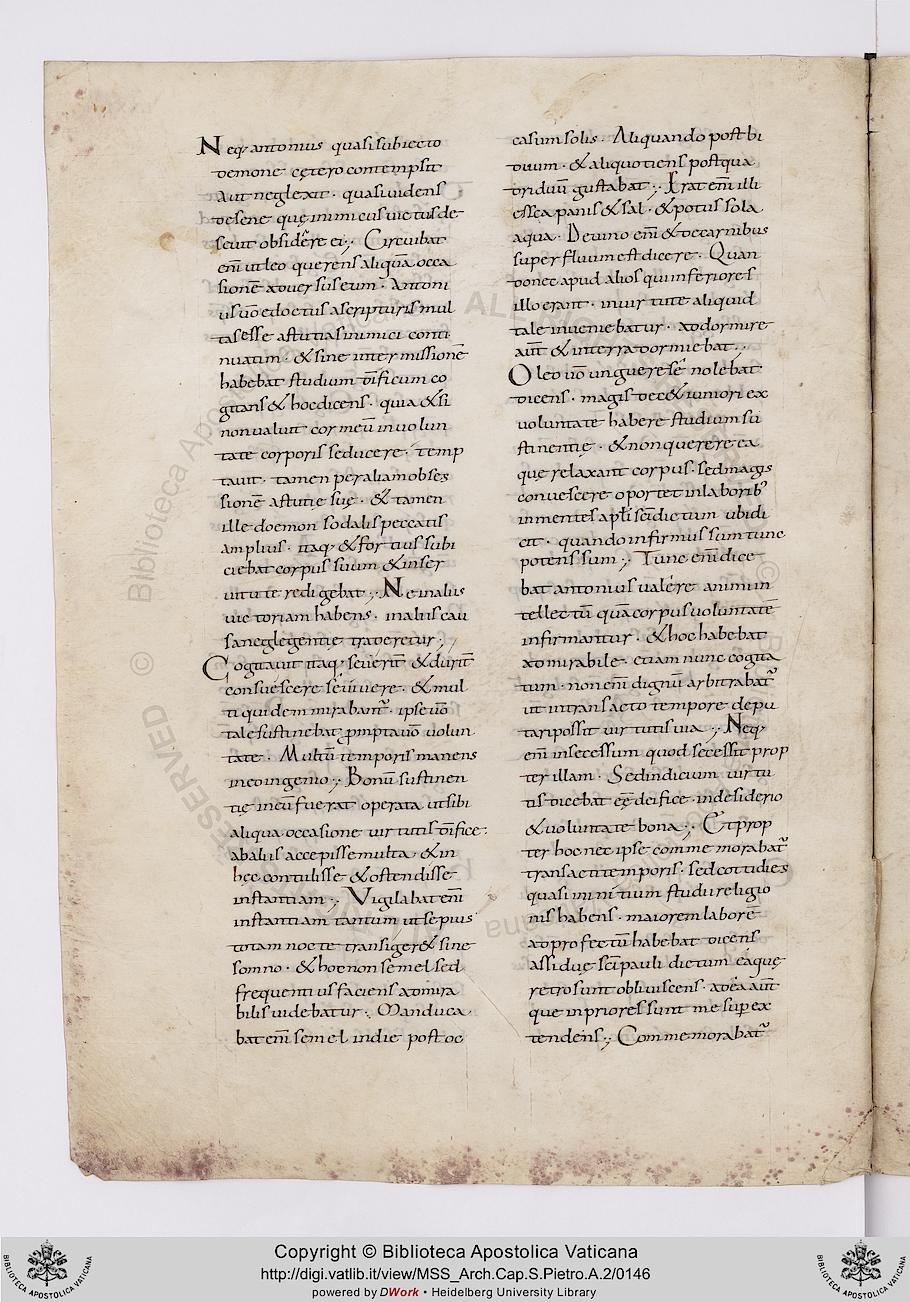 Neq; antonius quasi subiecto
demone cętero contempsit
Aut neglexit · quasi uidens
de sene quę inimicus uictus de-
seuit obsidere ei ; Circuibat
eni͞ ut leo querens aliqua͞ occa
sione͞ aduersus eum · Antoni
us uo͞ edoctus a scripturis mul
tas esse astutias inimici conti
nuatim · & sine intermissione͞
habebat studium di͞ficum co
gitans & hoc dicens · quia & si
non ualuit cor meu͞ in uolun
tate corporis seducere · temp
tauit · tamen per aliam obses
sione͞ astutie suę · & tamen
ille doemon sodalis peccatis
amplius · itaq; & fortius subi
ciebat corpus suum & in ser
uitute redigebat ; Ne in alius
uictoriam habens · in aliis cau
sa neglegentię traderetur ;
Cogitauit itaq; seuerit͞ & durit͞
consuescere se uiuere · & mul
ti quidem mirabant͞ · ipse uo͞
tale sustinebat prompta uo͞ uolun
tate · Multu͞ temporis manens
in eo ingenio ; Bonu͞ sustinen
tię in eu͞ fuerat operata ut sibi
aliqua occasione uirtutis di͞fice·
ab aliis accepisse multa · & in
hęc contulisse & ostendisse
instantiam ; Vigilabat eni͞
instantiam tantum ut sepius
totam nocte transiger& sine
somno · & hoc non semel sed
frequentius faciens admira
bilis uidebatur ; Manduca
bat eni͞ semel in die post oc
casum solis · Aliquando post bi
duum · & aliquotiens postqua
triduu͞ gustabat ; Erat eni͞ illi
essca panis & sal · & potus sola
aqua · De uino eni͞ & de carnibus
superfluum est dicere · Quan
do nec apud alios qui inferiores
illo erant · in uirtute aliquid
tale inueniebatur · ad dormire
aut͞ & in terra dormiebat ;
Oleo uo͞ unguere se nolebat
dicens · magis dec& iuniori ex
uoluntate habere studium su
stinentię · & non querere ea
que relaxant corpus · sed magis
conuescere oportet in laborib;
in mentes apl͞i sc͞i dictum ubi di
cit · quando infirmus sum tunc
potens sum ; Tunc eni͞ dice
bat antonius ualere anim in
tellectu͞ qua͞ corpus uoluntate͞
infirmantur · & hoc habebat
admirabile · etiam nunc cogita
tum · non eni͞ dignu͞ arbitrabat͞
ut in transacto tempore depu
tari possit uirtutis uia ; Neq;
eni͞ insecessum quod secessit prop
ter illam · Sed indicium uirtu
tis dicebat ee͞ deifice · in desiderio
& uoluntate bona ; Et prop
ter hoc nec ipse commemorabat͞
transacti temporis · sed cottidies
quasi initium studii religio
nis habens · maiorem labore͞
ad profectu͞ habebat dicens
assiduę sc͞i pauli dictum ea quę
retro sunt obliuiscens · ad ea aut͞
que in priores sunt me super ex
tendens ; Commemorabat͞
Copyright © Biblioteca Apostolica Vaticana
http://digi.vatlib.it/view/MSS_Arch.Cap.S.Pietro.A.2/0146
powered by DWork • Heidelberg University Library